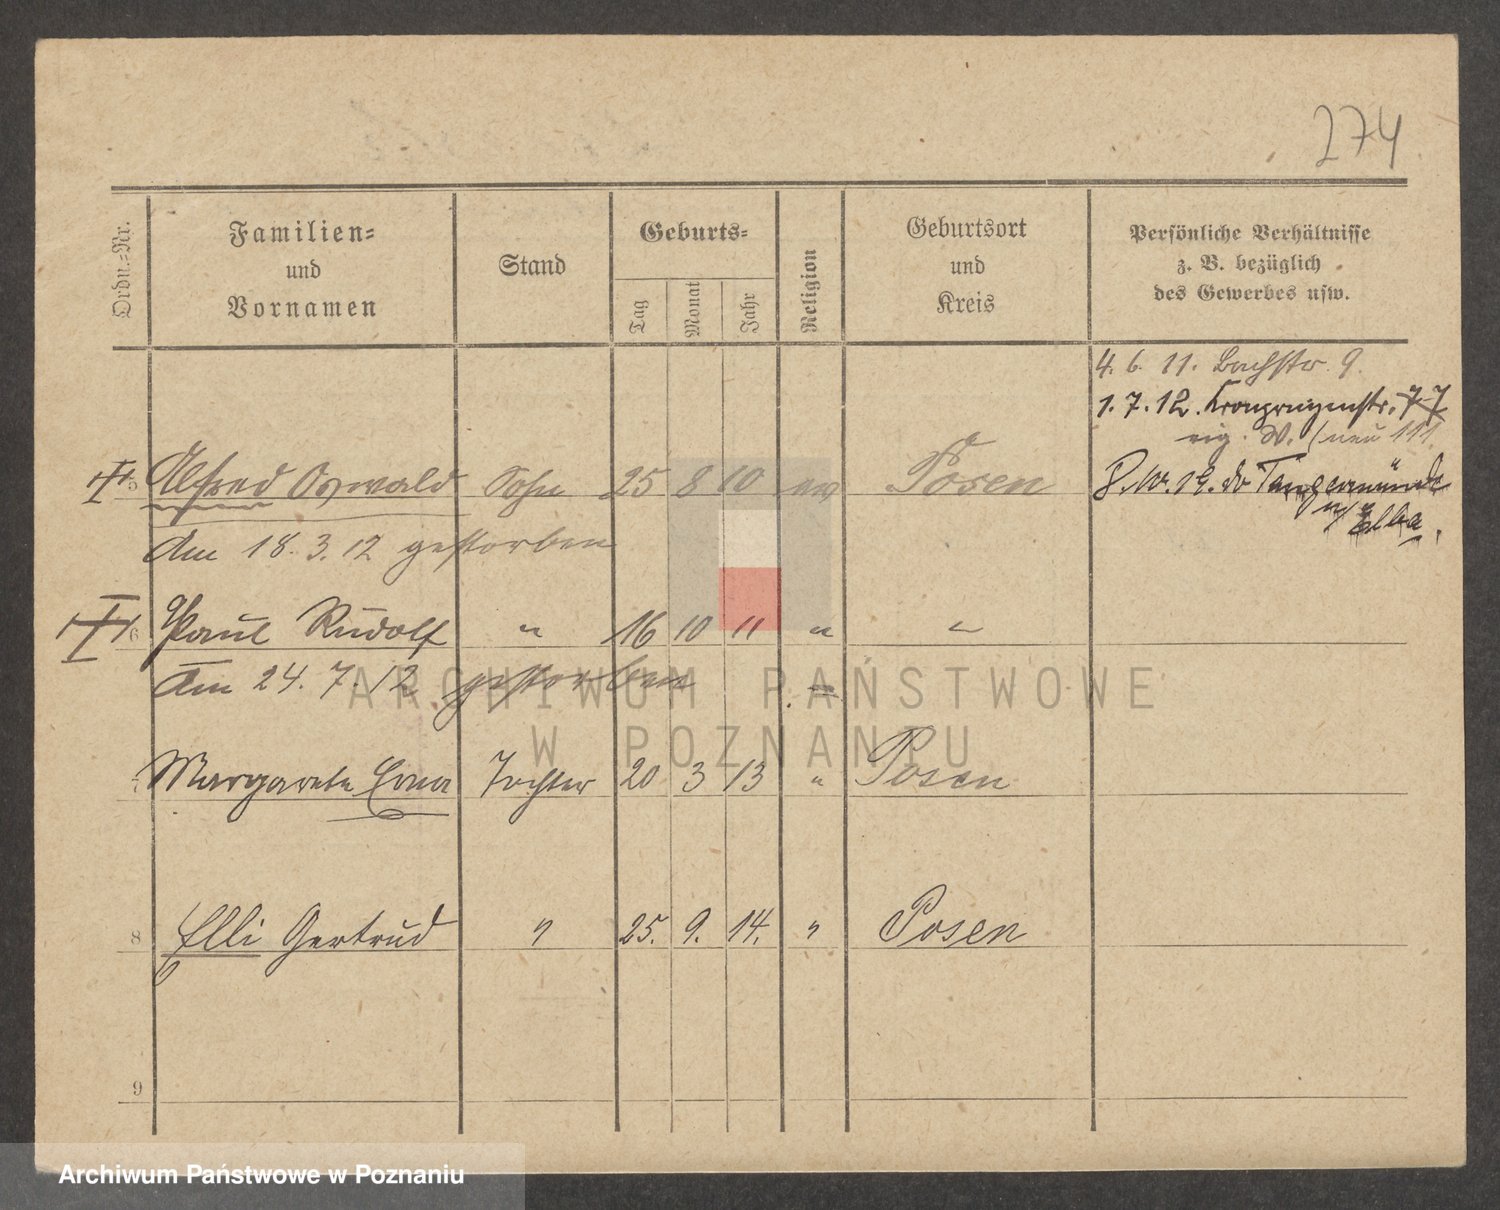 274
Ordn.-Nr.
Familien-
und
Vornamen
Stand
Geburts-
Tag
Monat
Jahr
Religion
Geburtsort
und
Kreis
Persönliche Verhältnisse
z. B. bezüglich
des Gewerbes usw.
4. 6. 11. Bachstr. 9.
1. 7. 12. Kronprinzenstr. 77
eig. W. (neu 111
5 Alfred Oswald Sohn 25 8 10 ev Posen
19. Tangermünde
a/Elba.
Am 18. 3. 12 gestorben
6 Paul Rudolf " 16 10 11 " "
Am 24. 7. 12 gestorben
7 Margarete Erna Tochter 20 3 13 " Posen
8 Elli Gertrud " 25. 9. 14. " Posen
9
ARCHIWUM PAŃSTWOWE
W POZNANIU
Archiwum Państwowe w Poznaniu